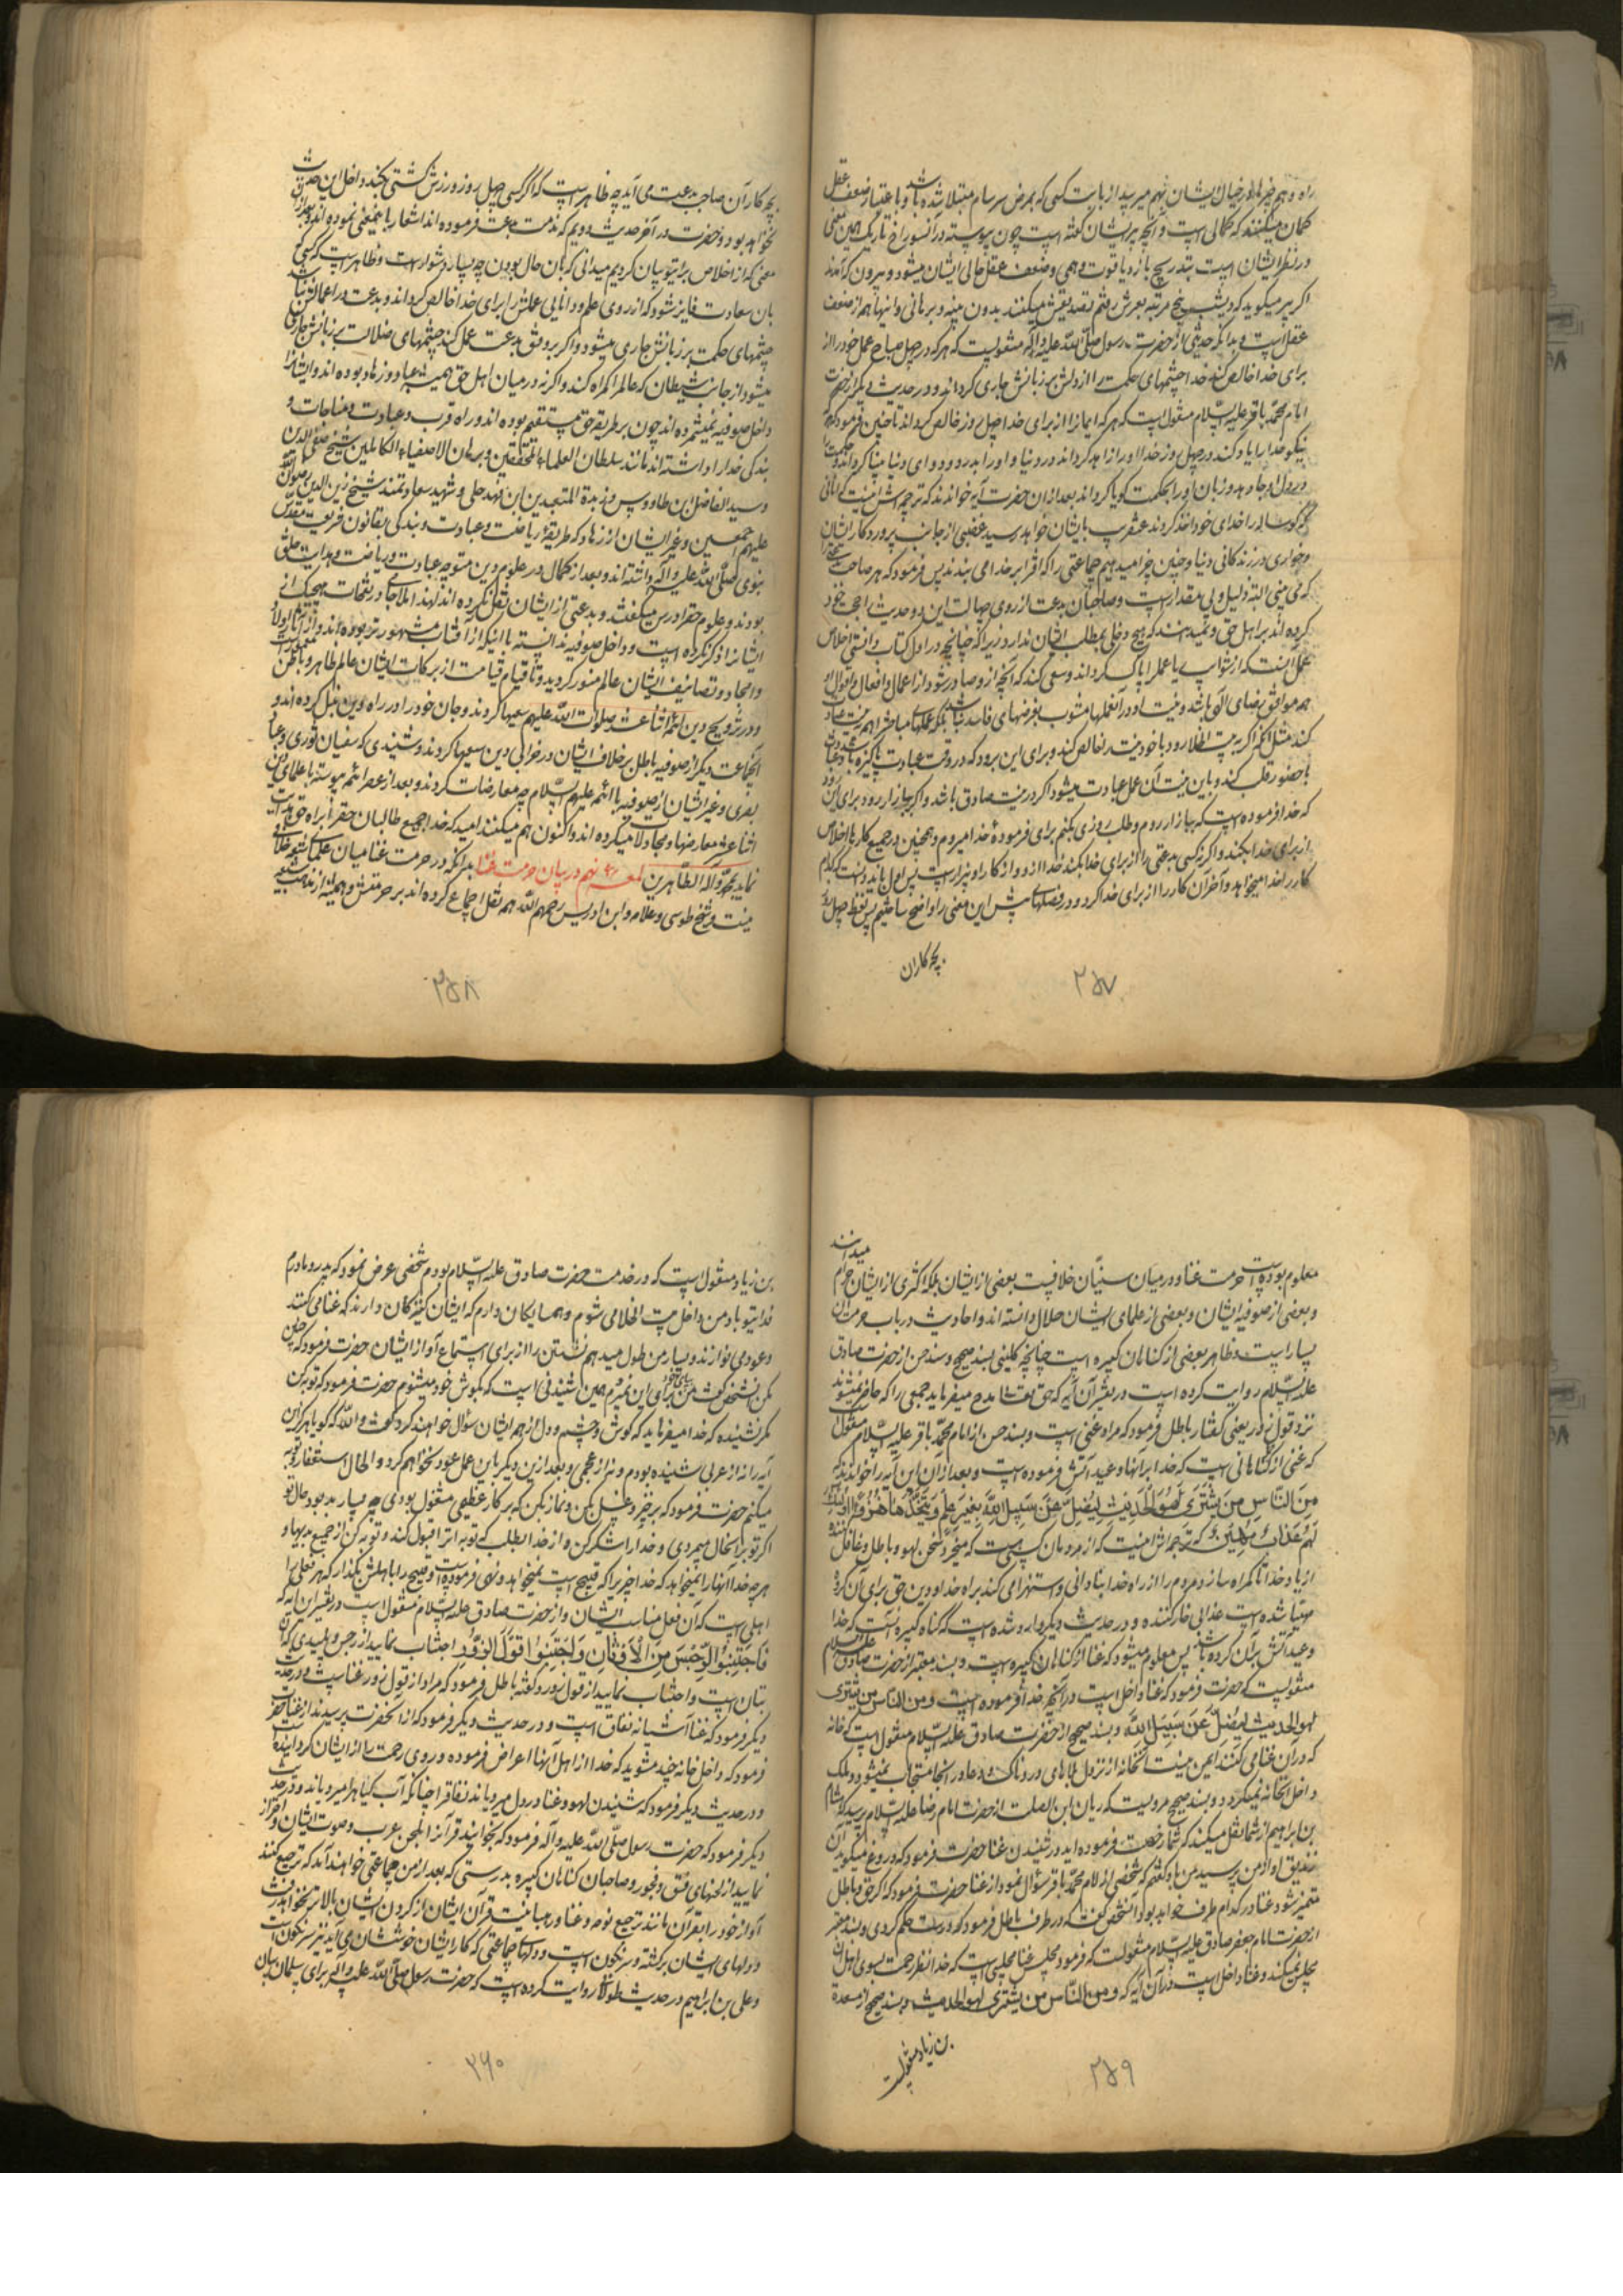 راه و هم خیرها در خیال ایشان بهم میرسد از بابت کسی که بمرض سرسام مبتلا شده باشد و باعتبار ضعف عقل
گمان میکنند که کمالی است و آنچه پیر ایشان گفته است چون پیوسته در آن سوراخ تاریک همین معنی
در نظر ایشان است بتدریج باز دیاقوت وهمی وضعف عقل حالی ایشان میشود و بیرون که آمدند
اگر پیر میگوید که دیشب پنج مرتبه بعرش رفتم تصدیقش میکنند بدون بینه و برهانی و اینها هم از ضعف
عقل است و بدانکه حدیثی از حضرت رسول صلی الله علیه و آله منقولست که هر که در چهل صباح عمل خود را از
برای خدا خالص کند خدا چشمهای حکمت را از دلش بر زبانش جاری گرداند و در حدیث دیگر از حضرت
امام محمد باقر علیه السلام منقول است که هر که ایمانرا از برای خدا چهل روز خالص گرداند تا چنین فرمود که هر که
نیکو خدا را یاد کند در چهل روز خدا او را زاهد گرداند در دنیا و او را بدرد و دوای دنیا بینا گرداند و حکمت را
در دل او جا دهد و زبان او را بحکمت گویا گرداند بعد از آن حضرت آیه خواندند که ترجمه اش اینست که آنانی
که گوساله را خدای خود اخذ کردند عنقریب بایشان خواهد رسید غضبی از جانب پروردگار ایشان
و خواری در زندگانی دنیا و چنین جزا میدهیم جماعتی را که افترا بر خدا می بندند پس فرمود که هر صاحب بدعتی را
که می بینی البته ذلیل و بی مقدار است و صاحبان بدعت از روی جهالت این دو حدیث را حجت خود
کرده اند بر اهل حق و نمیدانند که هیچ دخلی بمطلب ایشان ندارد زیرا که چنانچه در اول کتاب دانستی اخلاص
عمل آنست که از شوایب ریا عمل را پاک گرداند و سعی کند که آنچه از او صادر شود از اعمال و افعال و اقوال او
همه موافق رضای الهی باشد و نیت او در آن عملها مشوب بغرضهای فاسد نباشد بلکه عملهای مباح را هم به نیت عبادت
کند مثل آنکه اگر به بیت الخلا رود با خود نیت را خالص کند و برای این برود که در وقت عبادت پاکیزه باشد و دعا
با حضور قلب کند و باین نیت آن عمل عبادت میشود اگر در نیت صادق باشد و اگر ببازار رود برای این رود
که خدا فرموده است که ببازار روم و طلب روزی بکنم برای فرموده خدا میروم و همچنین در جمیع کارها اخلاص
از برای خدا بکند و اگر نه کسی بدعتی را از برای خدا بکند خدا از او و از کار او بیزار است پس اول باید دانست که کدام
کار را خدا میخواهد و آخر آن کار را از برای خدا کرد و در فصلهای پیش این معنی را واضح ساختیم پس لفظ چهل روز
بچه کار آن
۲۵۷
بچه کار آن صاحب بدعت می آید چه ظاهر است که اگر کسی چهل روز ورزش کشتی بکند داخل این حدیث
نخواهد بود و حضرت در آخر حدیث دویم که مذمت بدعت فرموده اند اشعار باینمعنی نموده اند و بعد از آن
معنی که از اخلاص برای تو بیان کردیم میدانی که بان حال بودن چه بسیار دشوار است و ظاهر است که کسی
بان سعادت فایز شود که از روی علم و دانایی عملش را برای خدا خالص گرداند و بدعت در اعمالش نباشد
چشمهای حکمت بر زبانش جاری میشود و اگر بر وفق بدعت عمل کند چشمهای ضلالت بر زبانش جاری
میشود از جانب شیطان که عالم را گمراه کند و اگر نه در میان اهل حق همیشه عباد و زهاد بوده اند و ایشانرا
داخل صوفیه نمیشمرده اند چون بر طریقه حق مستقیم بوده اند و راه قرب و عبادت و مناجات و
بندگی خدا را داشته اند مانند سلطان العلماء المحققین و برهان الاصفیاء الکاملین شیخ صفی الدین
و سید الفاضل ابن طاووس و زبدة المتعبدین ابن فهد حلی و شهید سعادتمند شیخ زین الدین رضوان الله
علیهم اجمعین و غیر ایشان از زهاد که طریقۀ ریاضت و عبادت و بندگی بقانون شریعت مقدس
نبوی صلی الله علیه و آله داشته اند و بعد از کمال در علوم دین متوجه عبادت و ریاضت و هدایت خلق
بودند و علوم حقه را درس میگفتند و بدعتی از ایشان نقل نکرده اند لهذا ملا جامی در نفحات هیچیک از
ایشانرا ذکر نکرده است و داخل صوفیه ندانسته با اینکه از آفتاب مشهورتر بوده اند و از آثار اولاد
و امجاد و تصانیف ایشان عالم منور گردید و تا قیام قیامت از برکات ایشان عالم ظاهر و باطن معمور است
و در ترویج دین ائمه اثنا عشر صلوات الله علیهم سعیها کردند و جان خود را در راه دین بذل کرده اند و
آنجماعت دیگر از صوفیه باطل بر خلاف ایشان در خرابی دین سعیها کردند و شنیدی که سفیان ثوری و عباد
بصری و غیر ایشان از صوفیه با ائمه علیهم السلام چه معارضات کردند و بعد از عصر ائمه پیوسته با علمای دین
اثنا عشر معارضها و مجادلات میکرده اند و اکنون هم میکنند امید که خدا جمیع طالبان حق را براه حق هدایت
نماید بمحمد و آله الطاهرین لمعه نهم در بیان حرمت غنا بدانکه در حرمت غنا میان علمای شیعه خلافی
نیست و شیخ طوسی و علامه و ابن ادریس رحمهم الله هم نقل اجماع کرده اند بر حرمتش و همیشه از مذهب شیعه
۲۵۸
معلوم بوده است حرمت غنا و در میان سنیان خلافیست بعضی از ایشان بلکه اکثری از ایشان حرام میدانند
و بعضی از صوفیه ایشان و بعضی از علمای ایشان حلال دانسته اند و احادیث در باب حرمت آن
بسیار است و ظاهر بعضی از گناهان کبیره است چنانچه کلینی بسند صحیح و سند حسن از حضرت صادق
علیه السلام روایت کرده است در تفسیر آن آیه که حق تعالی مدح میفرماید جمعی را که حاضر نمیشوند
نزد قول زور یعنی گفتار باطل فرمود که مراد غنی است و بسند حسن از امام محمد باقر علیه السلام منقول است
که غنی از گناهانی است که خدا بر آنها وعید آتش فرموده است و بعد از آن این آیه را خواندند که
مِنَ النّاسِ مَن یَشتَری لَهوَ الحَدیثِ لِیُضِلَّ عَن سَبیلِ اللهِ بِغَیرِ عِلمٍ وَ یَتَّخِذَها هُزُواً اُولئِکَ
لَهُم عَذابٌ مُهینٌ که ترجمه اش اینست که از مردمان کسی هست که میخرد سخن لهو و باطل و غافل کننده
از یاد خدا تا گمراه سازد مردم را از راه خدا بنادانی و استهزا می کند براه خدا و دین حق برای آن گروه
مهیا شده است عذابی خوار کننده و در حدیث دیگر وارد شده است که گناه کبیره آنست که خدا
وعید آتش بر آن کرده باشد پس معلوم میشود که غنا از گناهان کبیره است و بسند معتبر از حضرت صادق علیه السلام
منقولست که حضرت فرمود که غنا داخل است در آنچه خدا فرموده است و من الناس من یشتری
لهو الحدیث لِیُضِلَّ عَن سَبیلِ اللهِ و بسند صحیح از حضرت صادق علیه السلام منقول است که خانه
که در آن غنا می کنند ایمن نیست آنخانه از نزول بلاهای دردناک و دعا در آنجا مستجاب نمیشود و ملک
داخل آنخانه نمیگردد و بسند صحیح مرویست که ریان ابن الصلت از حضرت امام رضا علیه السلام پرسید که هشام
بن ابراهیم از شما نقل میکند که شما رخصت فرموده اید در شنیدن غنا حضرت فرمود که دروغ میگوید آن
زندیق او از من پرسید من باو گفتم که شخصی از امام محمد باقر سؤال نمود از غنا حضرت فرمود که اگر حق و باطل
متمیز شود غنا در کدام طرف خواهد بود آنشخص گفت که در طرف باطل فرمود که درست حکم کردی و بسند معتبر
از حضرت امام جعفر صادق علیه السلام منقولست که فرمود مجلس غنا مجلسی است که خدا نظر رحمت بسوی اهل آن
مجلس نمیکند و غنا داخل است در آن آیه که و من الناس من یشتری لهو الحدیث و بسند صحیح از مسعدة
بن زیاد منقولست
۲۵۹
بن زیاد منقول است که در خدمت حضرت صادق علیه السلام بودم شخصی عرض نمود که پدر و مادرم
فدای تو باد من داخل بیت الخلا می شوم و همسایگان دارم که ایشان کنیزکان دارند که غنا می کنند
و عود می نوازند و بسیار من طول میدهم نشستن را از برای استماع آواز ایشان حضرت فرمود که چنین
مکن آنشخص گفت من بپای خود برای این نمیروم همین شنیدنی است که بگوش خود میشنوم حضرت فرمود که توبه کن
مگر نشنیده که خدا میفرماید که گوش و چشم و دل از همه ایشان سؤال خواهند کرد گفت والله که گویا هرگز این
آیه را نه از عربی شنیده بودم و نه از عجمی و بعد ازین دیگر باین عمل عود نخواهم کرد و الحال استغفار و توبه
میکنم حضرت فرمود که برخیز و غسل بکن و نماز بکن که بر کار عظیمی مشغول بودی چه بسیار بد بود حال تو
اگر تو برین حال میمردی و خدا را شکر کن و از خدا بطلب که توبه اترا قبول کند و توبه کن از جمیع بدیها و
هر چه خدا آنها را نمیخواهد که خدا چیزیرا که قبیح است نمیخواهد و نهی فرموده است و قبیح را باهلش بگذار که هر فعلی را
اهلی است که آن فعل مناسب ایشان و از حضرت صادق علیه السلام منقول است در تفسیر این آیه که
فَاجتَنِبُوا الرِّجسَ مِنَ الاَوثانِ وَ اجتَنِبُوا قَولَ الزُّورِ اجتناب نمایید از رجس و پلیدی که آن
بتان است و اجتناب نمایید از قول زور و گفته باطل فرمود که مراد از قول زور غناست و در حدیث
دیگر فرمود که غنا آشیانه نفاق است و در حدیث دیگر فرمود که از آنحضرت پرسیدند از غنا حضرت
فرمود که داخل خانه چند مشوید که خدا از اهل آنها اعراض فرموده و روی رحمت را از ایشان گردانیده است
و در حدیث دیگر فرمود که شنیدن لهو و غنا در دل میرویاند نفاق را چنانکه آب گیاه را میرویاند و در حدیث
دیگر فرمود که حضرت رسول صلی الله علیه و آله فرمود که بخوانید قرآنرا بلحن عرب و صوت ایشان و احتراز
نمایید از لحنهای فسق و فجور و صاحبان گناهان کبیره بدرستی که بعد از من جماعتی خواهند آمد که ترجیع کنند
آواز خود را بقرآن مانند ترجیع نوحه و غنا و رهبانیت قرآن ایشان از گردن ایشان بالاتر نخواهد رفت
و دلهای ایشان برگشته و سرنگون است و دلهای جماعتی که کار ایشان خوششان می آید نیز سرنگونست
و علی بن ابراهیم در حدیث طولانی روایت کرده است که حضرت رسول صلی الله علیه و آله برای سلمان بیان
۲۶۰